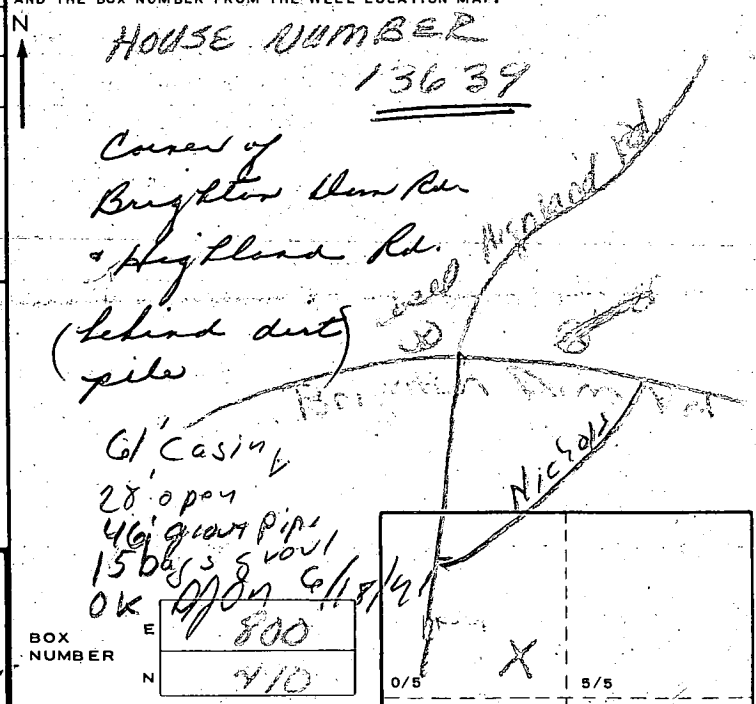 AND THE BOX NUMBER FROM THE WELL LOCATION MAP.
N
HOUSE NUMBER
13639
Corner of
Brighton Dam Rd.
& Highland Rd.
(behind dirt
pile)
well
Highland Rd
Brighton Dam Rd
Nichols
61' Casing
28' open
46' grout pipe
15 bags grout
OK
BOX
NUMBER
E 800
N
X
0/5
5/5